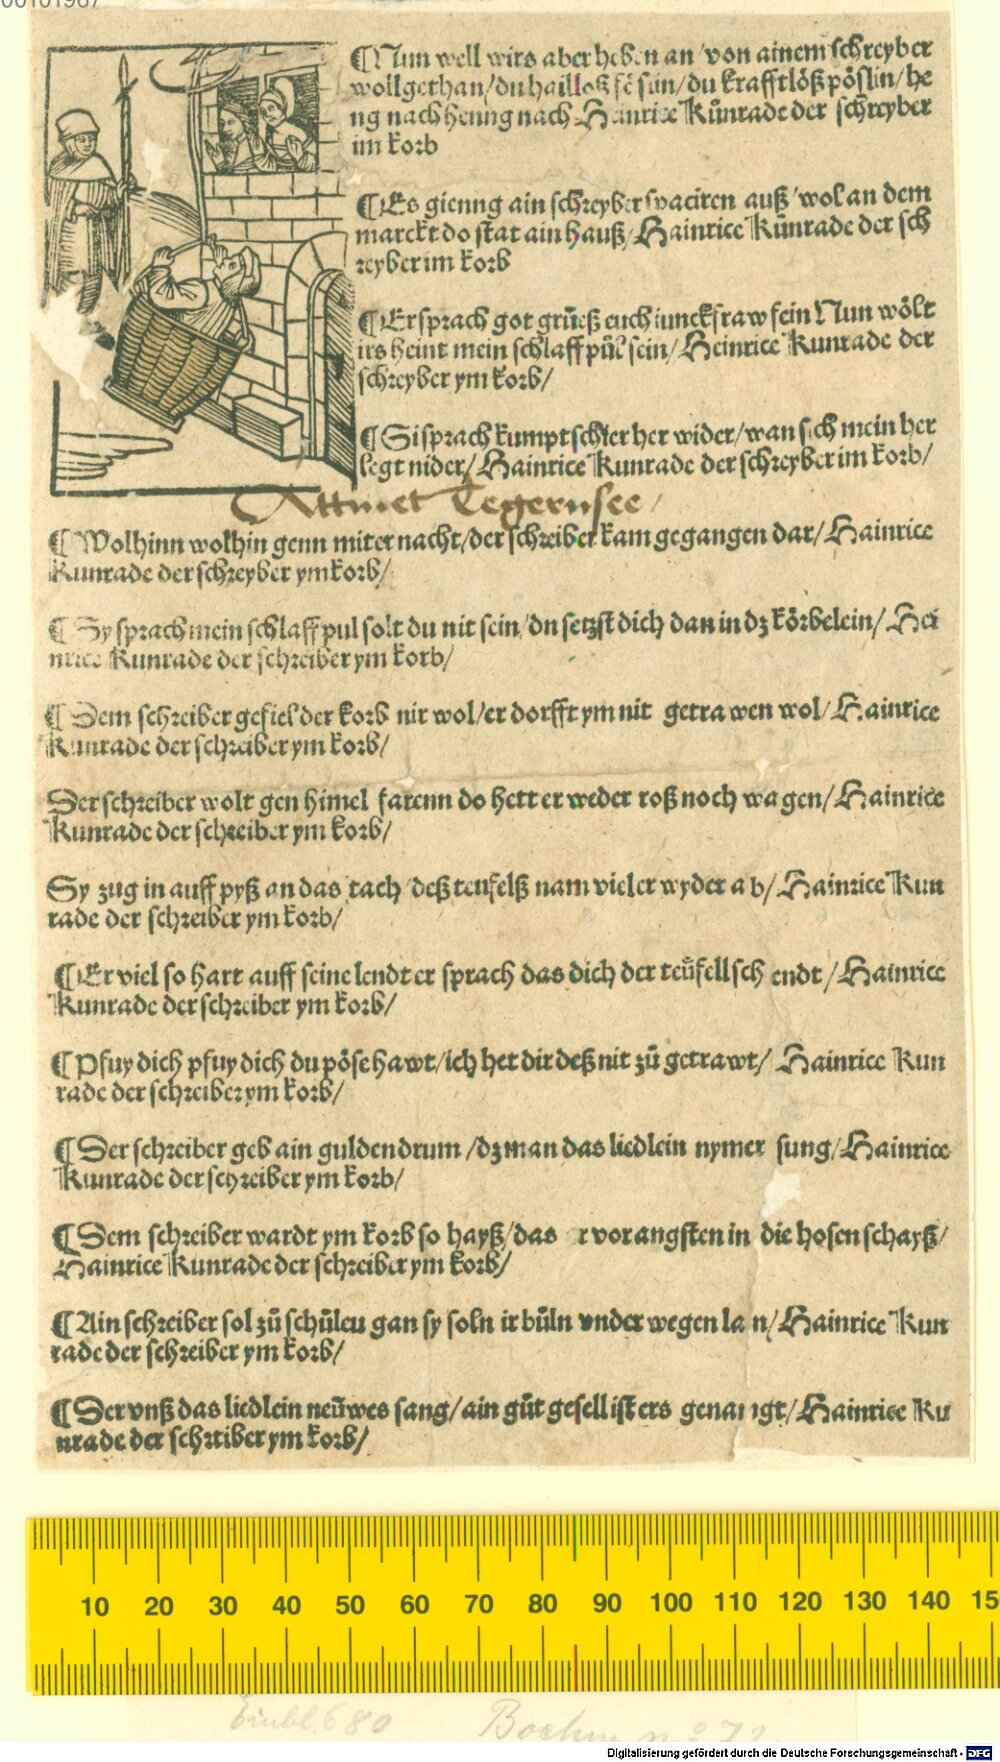 ¶Nun well wirs aber heben an/von ainem schreyber
wollgethan/du hailloß sě sun/du krafftlöß pöslin/he
ng nach henng nach Hainrice Kůnrade der schreyber
im korb
¶Es gienng ain schreyber spaciren auß/wol an dem
marckt do stat ain hauß/Hainrice Kůnrade der sch
reyber im korb
¶Er sprach got grůeß euch iunckfraw fein Nun wölt
irs heint mein schlaff pül sein/Heinrice Kunrade der
schreyber ym korb/
¶Si sprach kumpt schier her wider/wan sich mein her
legt nider/Hainrice Kunrade der schreyber im korb/
Attinet Tegernsee/
¶Wolhinn wolhin genn miter nacht/der schreiber kam gegangen dar/Hainrice
Kunrade der schreyber ym korb/
¶Sy sprach mein schlaff pul solt du nit sein/dn setzst dich dan in dz körbelein/Hei
nrice Kunrade der schreiber ym korb/
¶Dem schreiber gefiel der korb nit wol/er dorfft ym nit getrawen wol/Hainrice
Kunrade der schreiber ym korb/
Der schreiber wolt gen himel farenn do hett er weder roß noch wagen/Hainrice
Kunrade der schreiber ym korb/
Sy zug in auff pyß an das tach/deß teufelß nam viel er wyder ab/Hainrice Kun
rade der schreiber ym korb/
¶Er viel so hart auff seine lendt er sprach das dich der teüfell schendt/Hainrice
Kunrade der schreiber ym korb/
¶Pfuy dich pfuy dich du pöse hawt/ich het dir deß nit zů getrawt/Hainrice Kun
rade der schreiber ym korb/
¶Der schreiber geb ain gulden drum/dz man das liedlein nymer sung/Hainrice
Kunrade der schreiber ym korb/
¶Dem schreiber wardt ym korb so hayß/das r vor angsten in die hosen schayß/
Hainrice Kunrade der schreiber ym korb/
¶Ain schreiber sol zů schůleu gan sy soln ir bůln vnder wegen lan/Hainrice Kun
rade der schreiber ym korb/
¶Der vnß das liedlein neüwes sang/ain gůt gesell ist ers genangt/Hainrice Ku
nrade der schreiber ym korb/
10 20 30 40 50 60 70 80 90 100 110 120 130 140 15
Einbl. 680 Boehm
Digitalisierung gefördert durch die Deutsche Forschungsgemeinschaft - DFG